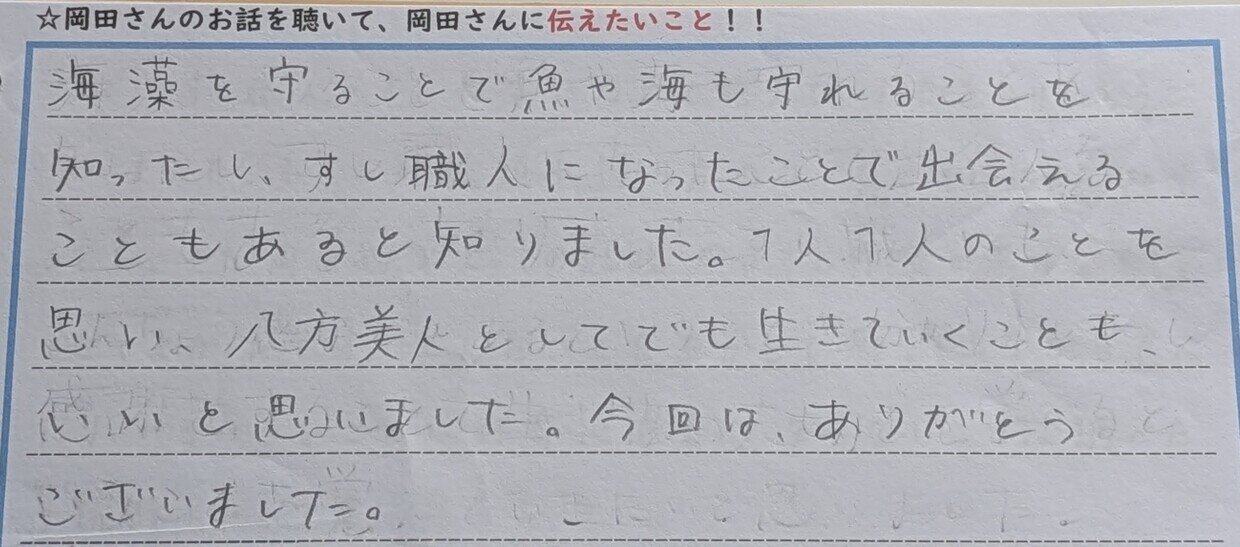 ☆岡田さんのお話を聴いて、岡田さんに伝えたいこと！！
海藻を守ることで魚や海も守れることを
知ったし、すし職人になったことで出会える
こともあると知りました。1人1人のことを
思い、八方美人としてでも生きていくことも、
いいと思いました。今回は、ありがとう
ございました。